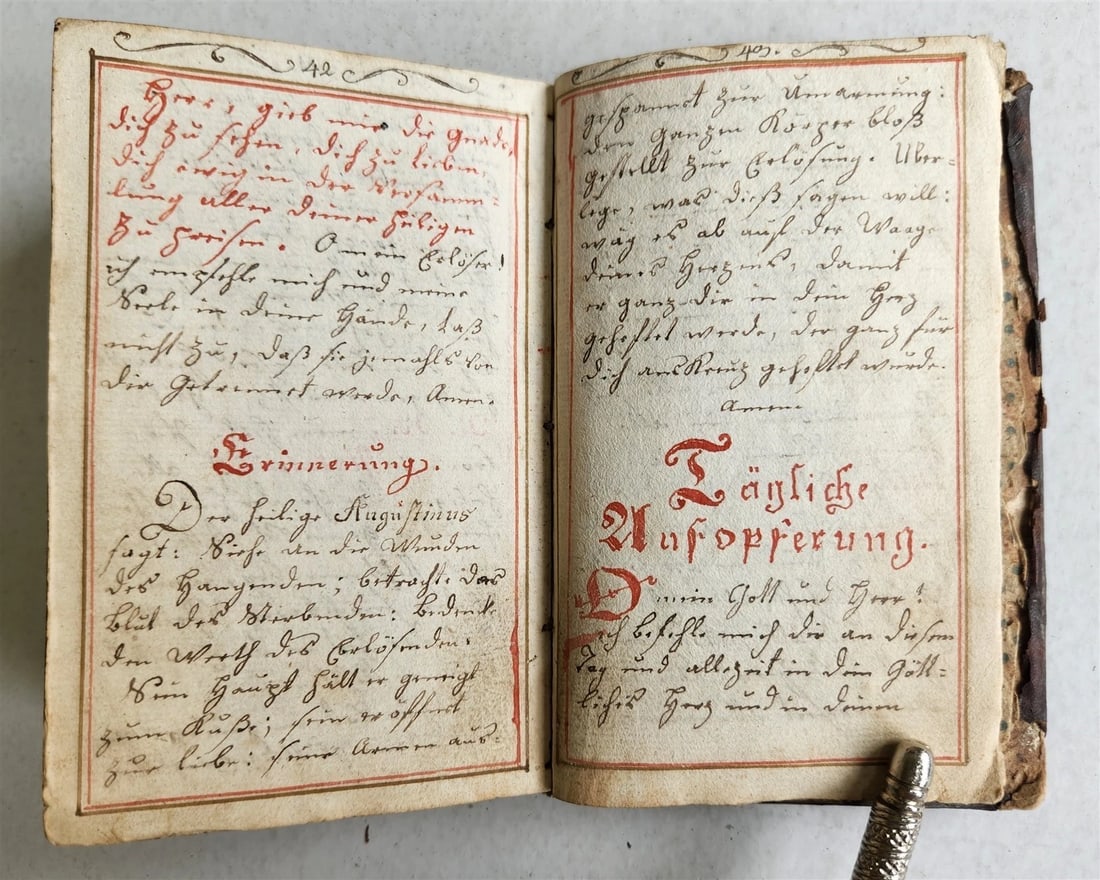 42
Herr, gieb mir die Gnade,
dich zu sehen, dich zu lieben,
dich ewig in der Versamm=
lung aller deiner Heiligen
zu preisen. O mein Erlöser!
ich empfehle mich und meine
Seele in deine Hände, laß
nicht zu, daß sie jemahls von
dir getrennet werde, Amen.
Erinnerung.
Der heilige Augustinus
sagt: Siehe an die Wunden
des Hangenden; betrachte das
Blut des Sterbenden: bedenke
den Werth des Erlösenden:
Sein Haupt hält er geneigt
zum Kuße; sein eröffnet
zur liebe: seine Armen aus=
gespannet zur Umarmung:
den ganzen Körper bloß
gestellt zur Erlösung. Über=
lege, was dieß sagen will:
wäg es ab auf der Waage
deines Herzens, damit
er ganz dir in dein Herz
geheftet werde, der ganz für
dich ans Kreuz geheftet wurde.
Amen
Tägliche
Aufopferung.
O mein Gott und Herr!
ich befehle mich dir an diesem
Tag und allezeit in dein Gött=
liches Herz und in deinen